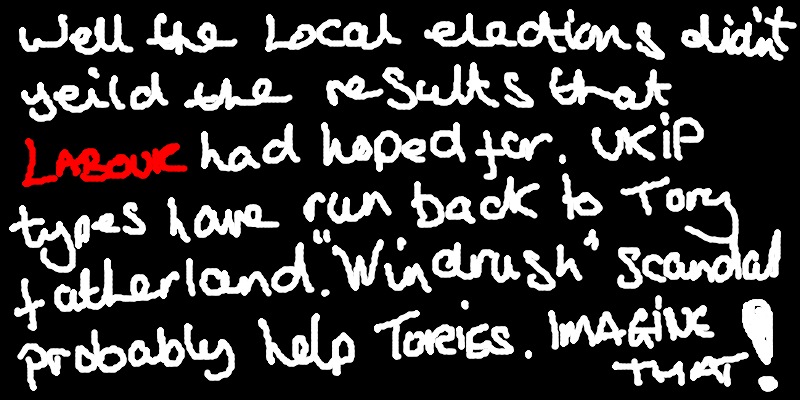 Well the Local elections didn't
yeild the results that
LABOUR had hoped for. UKIP
types have run back to Tory
fatherland. "Windrush" scandal
probably help TORIES. IMAGINE
THAT!